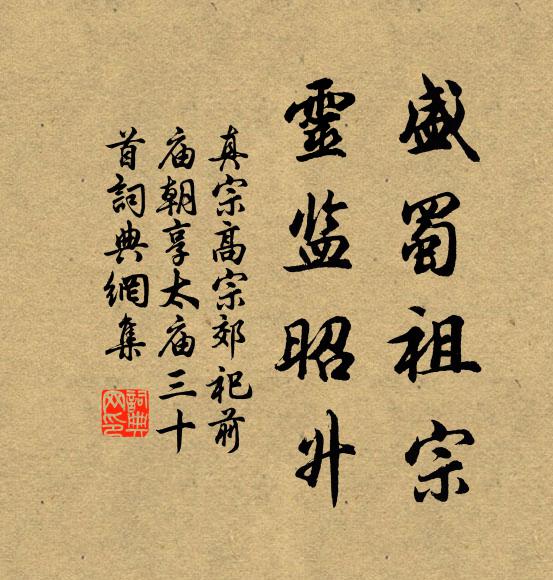 盛蜀祖宗
靈监昭升
真宗高宗郊祀前
庙朝享太庙三十
首詞典網集
詞典网印